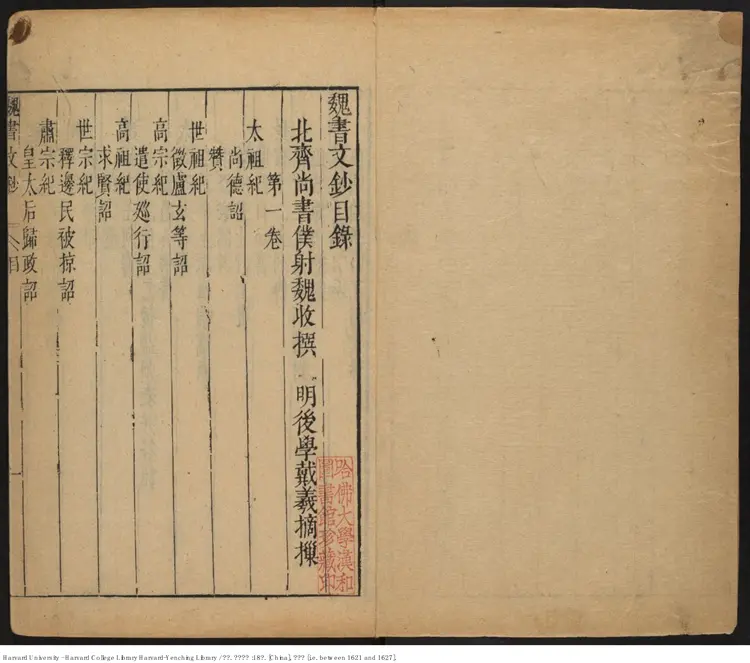 魏書文鈔目錄
北齊尚書僕射魏收撰 明後學戴羲摘撰
第一卷
太祖紀
尚德詔
贊
世祖紀
徵盧玄等詔
高宗紀
遣使廵行詔
高祖紀
求賢詔
世宗紀
釋邊民被掠詔
肅宗紀
皇太后歸政詔
魏書文鈔 目 一
哈佛大學漢和
圖書館珍藏印
Harvard University - Harvard College Library Harvard-Yenching Library / ??. ???? :18?. [China], ??? [i.e. between 1621 and 1627].